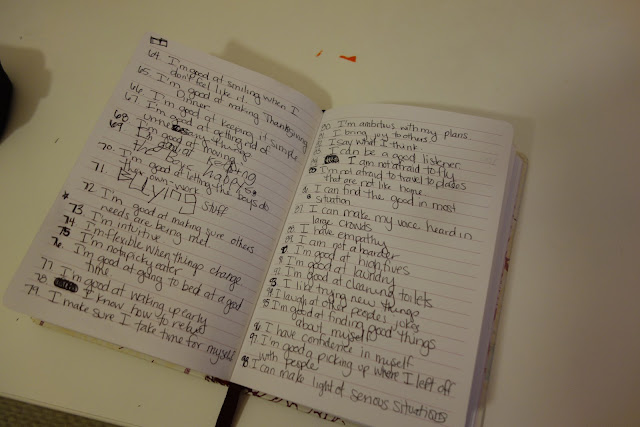 64. I'm good at smiling when I
don't feel like it.
65. I'm good at making Thanksgiving
Dinner
66. I'm good at keeping it simple
67. I'm good at getting rid of
things
68
69 I'm good at keeping
the boys happy.
70. I'm good at letting the boys do
their own work
71. Buying stuff
72 I'm good at making sure others
needs are being met
73 I'm intuitive
74 I'm flexible when things change
75 I'm not a picky eater
76. I'm good at going to bed at a good
time
77 I'm good at waking up early
78 I know how to relax
79. I make sure I take time for myself
80. I'm ambitious with my plans
I bring joy to others
I say what I think
I can be a good listener
I am not afraid to fly
I'm not afraid to travel to places
that are not like home
I can find the good in most
situation
I can make my voice heard in
large crowds
I have empathy
I am not a hoarder
I'm good at high fives
I'm good at laundry
I'm good at cleaning toilets
93 I like trying new things
94 I laugh at other peoples jokes
95 I'm good at finding good things
about myself
96 I have confidence in myself
97 I'm good a picking up where I left off
with people
98 I can make light of serious situations